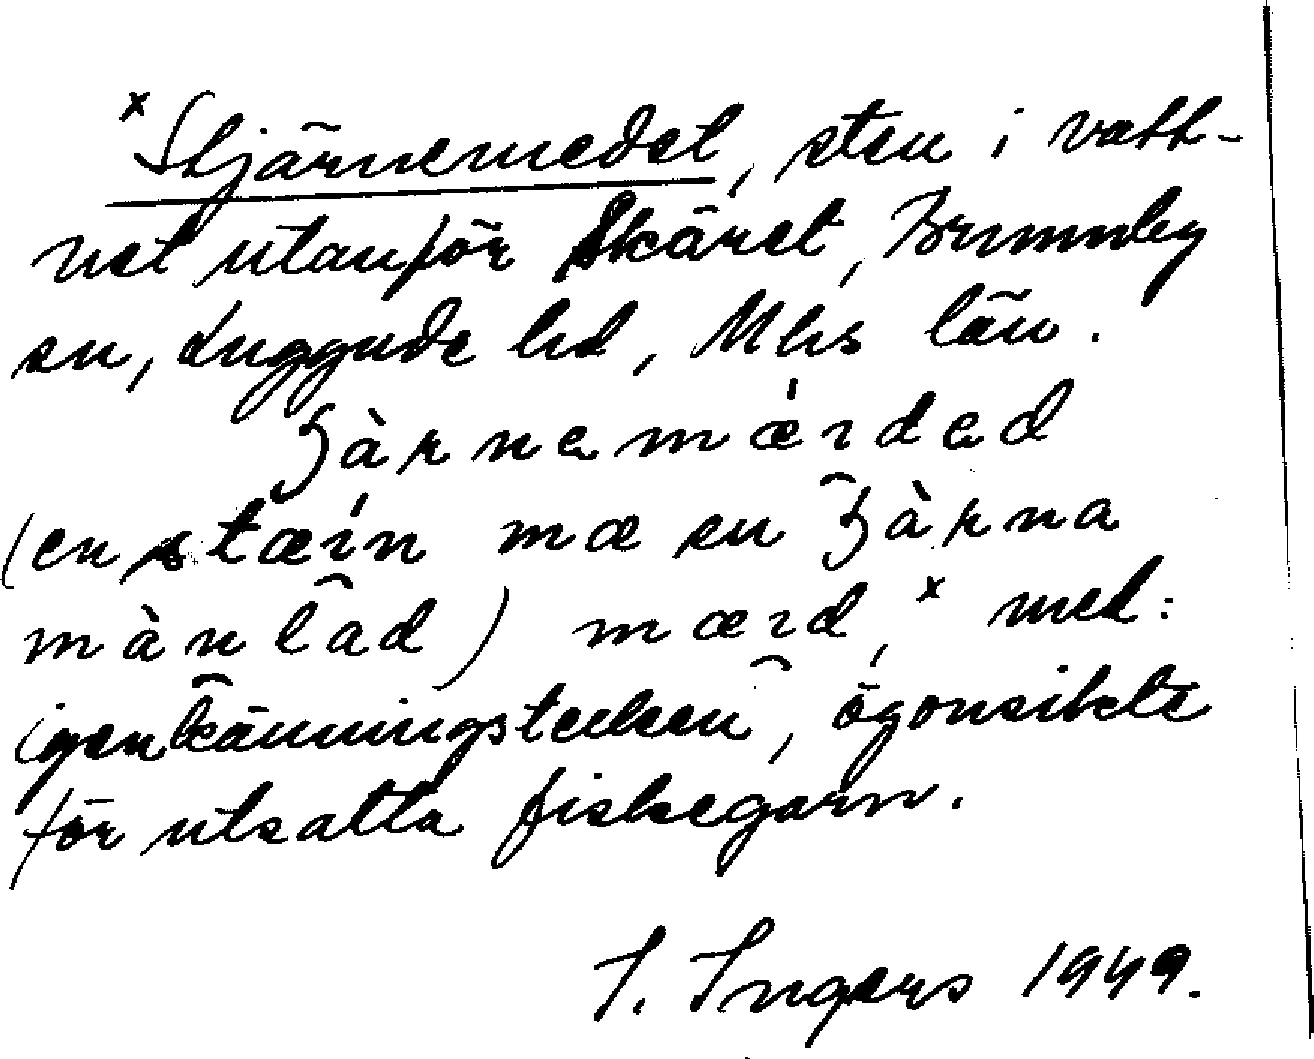 x Stjärnemedet, sten i vatt-
net utanför Skäret, Brunnby
sn, Luggude hd, Mhs län.
ʒàʀnemǽɪded
(en stæín mæ en ʒàʀna
mànlad) mæɪd, x med:
igenkänningstecken, ögonsikte
för utsatta fiskegarn.
I. Ingers 1949.